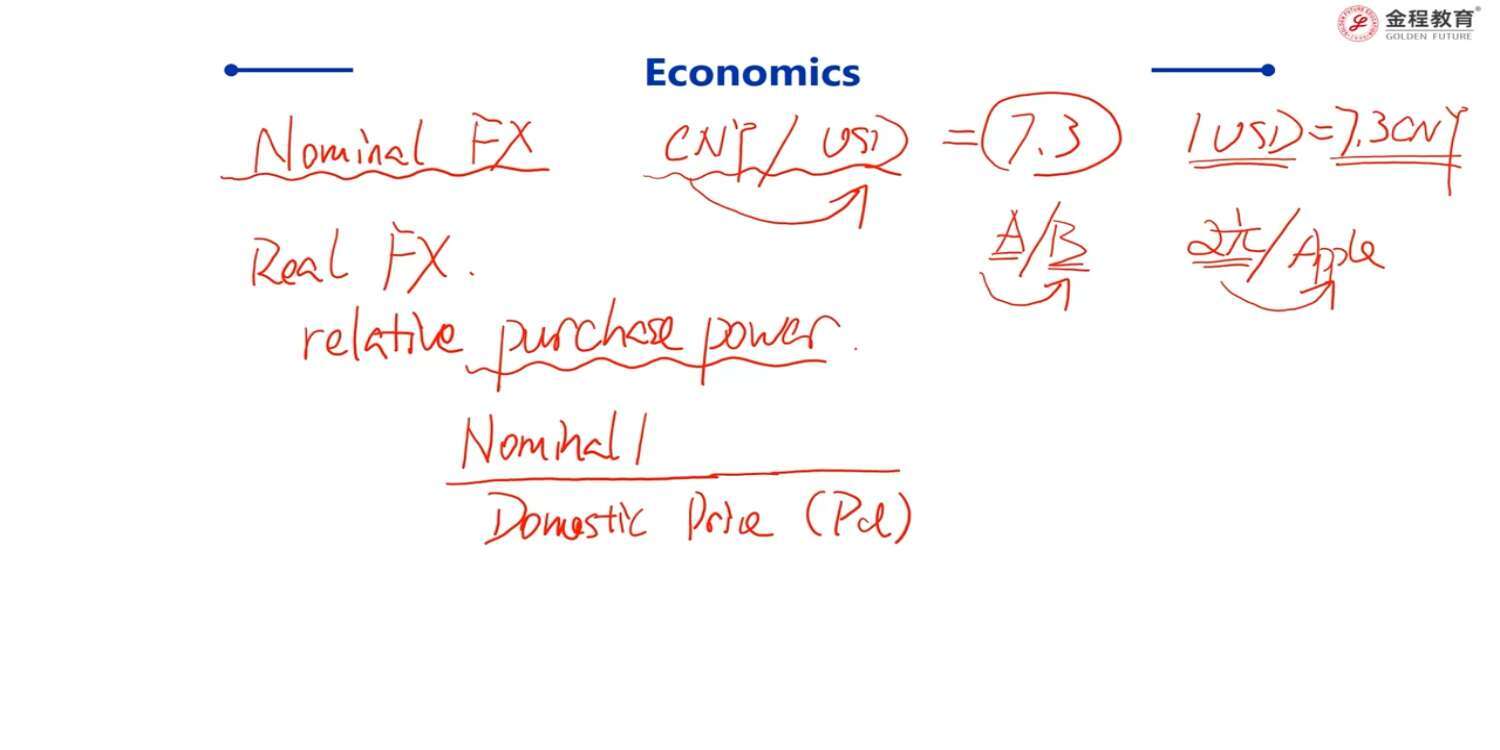 金程教育
GOLDEN FUTURE
Economics
Nominal FX CNY / USD = 7.3 1 USD = 7.3 CNY
Real FX. A/B 2元/Apple
relative purchase power.
Nominal /
Domestic Price (Pd)